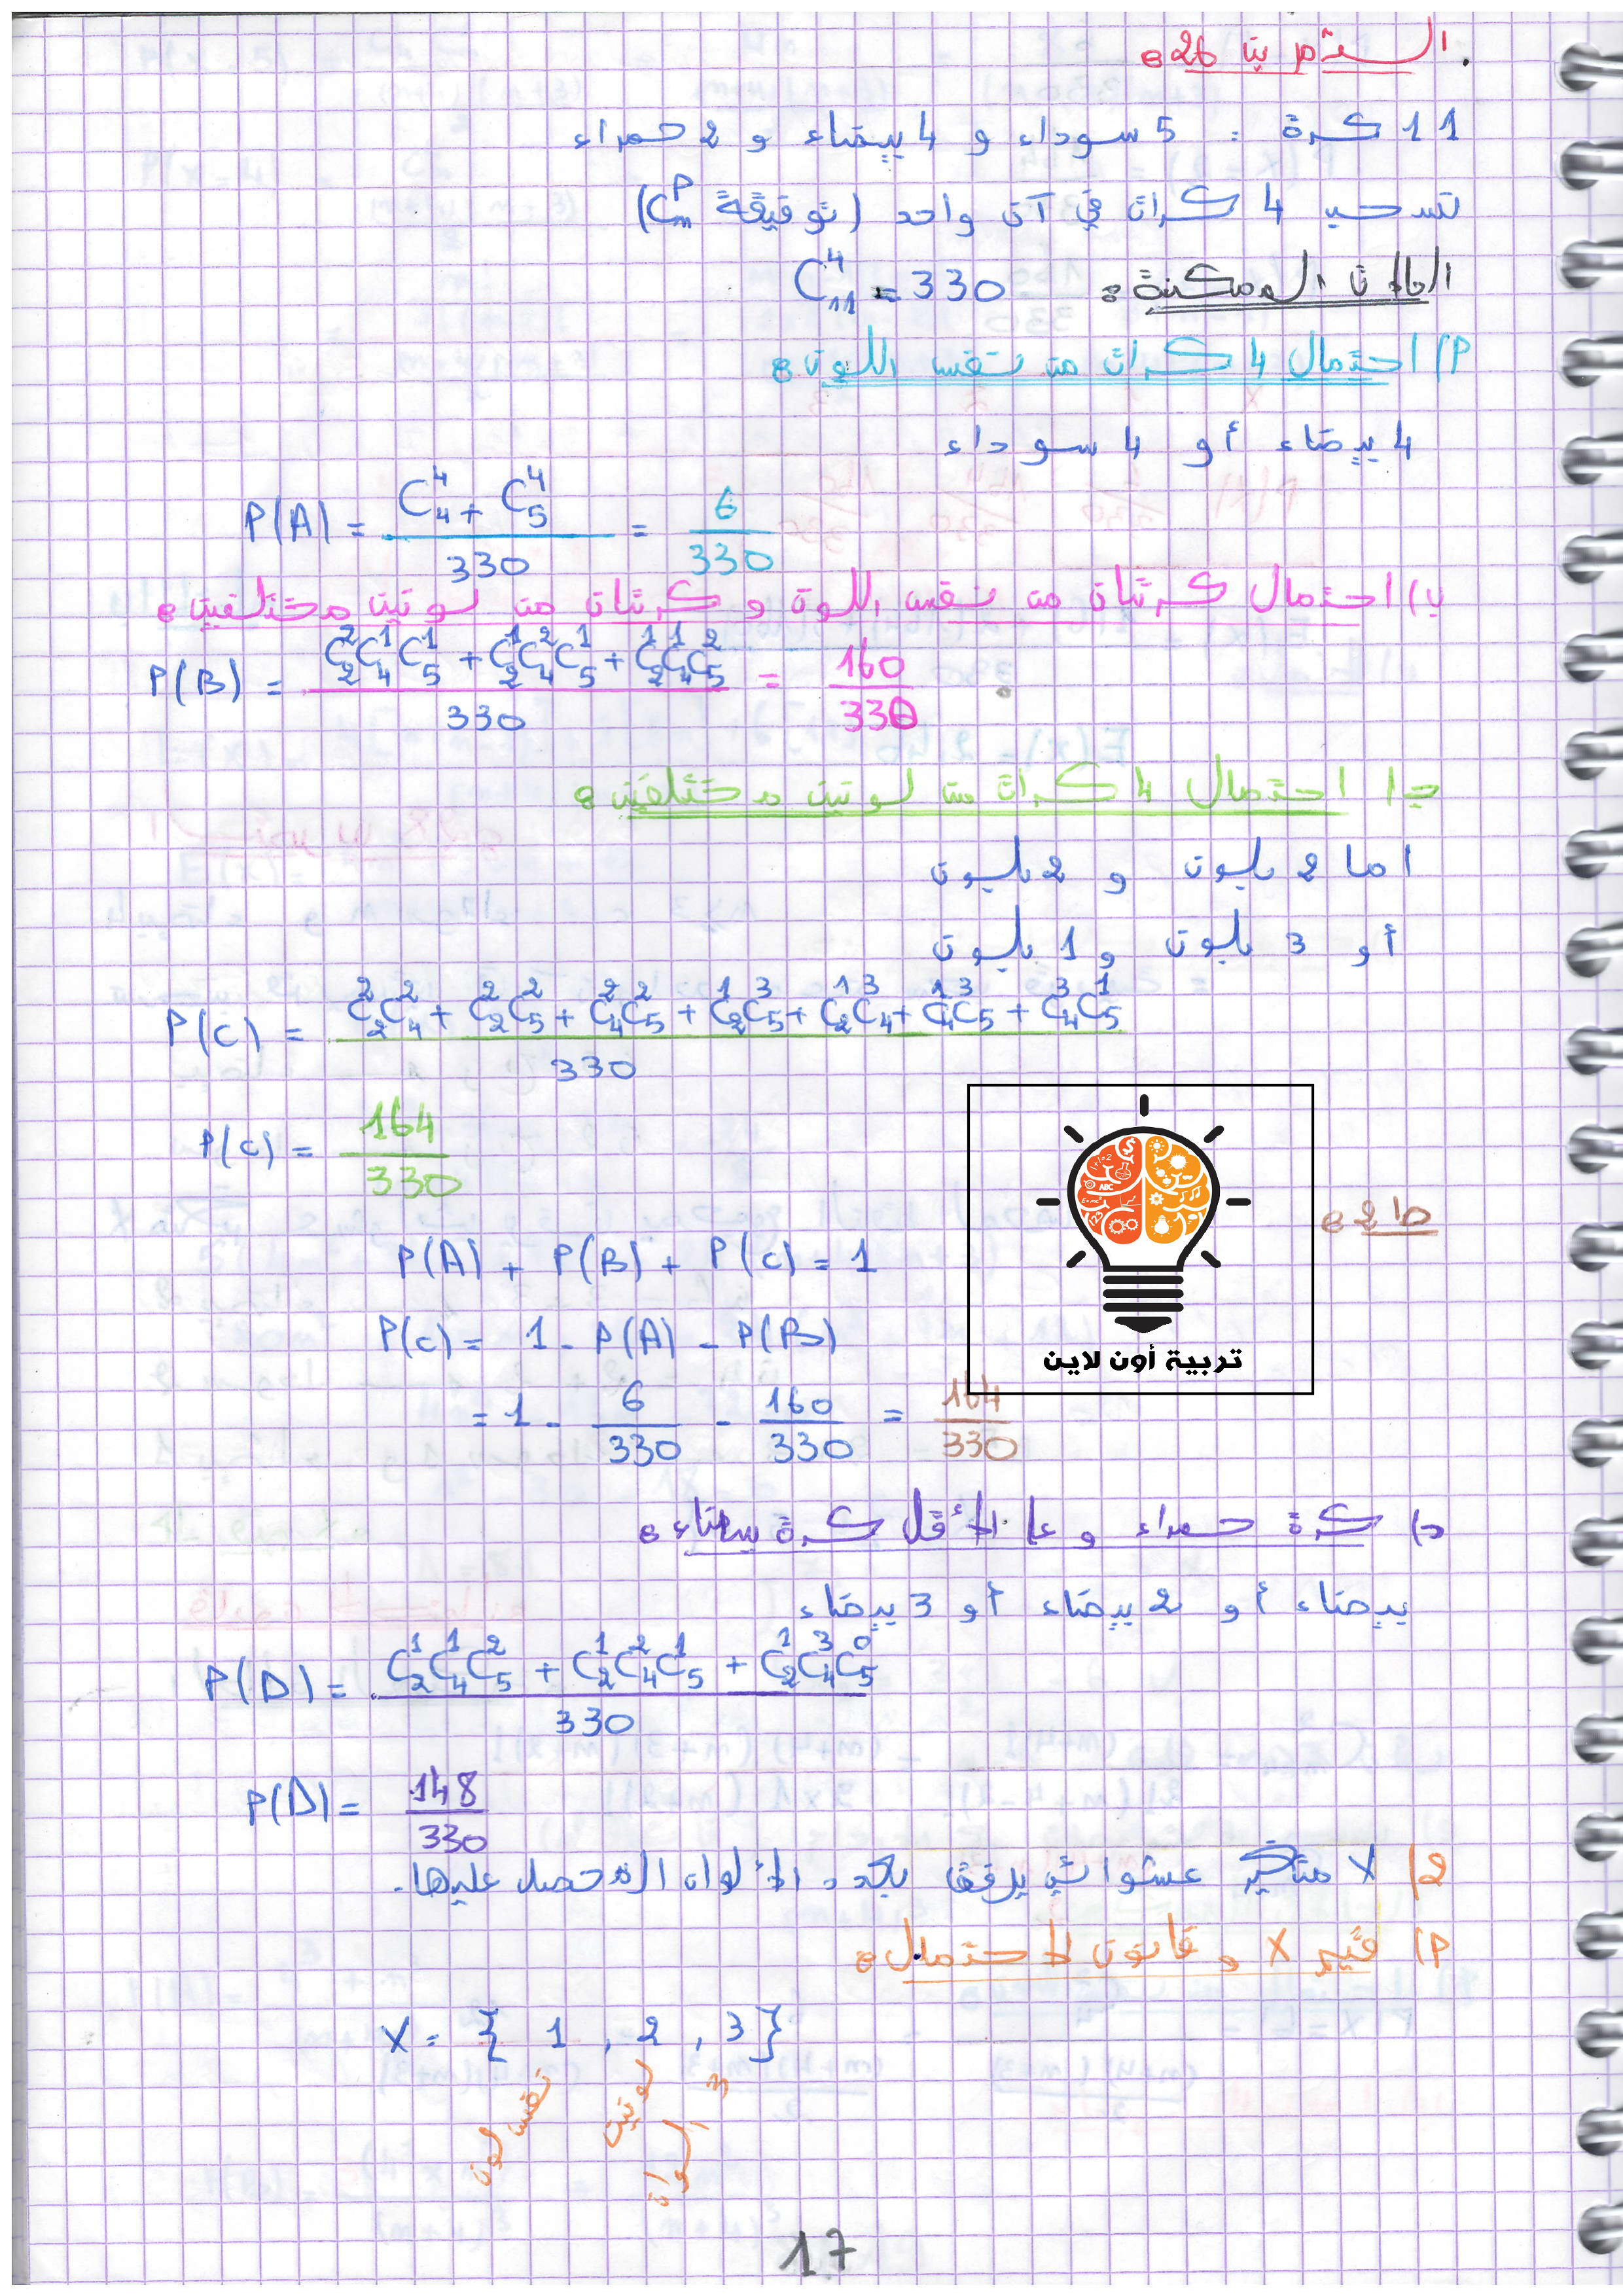 التمرين 26:
11 كرة : 5 سوداء و 4 بيضاء و 2 حمراء
نسحب 4 كرات في آن واحد (توفيقة C_n^P)
الحالات الممكنة: C_11^4 = 330
P) احتمال 4 كرات من نفس اللون:
4 بيضاء أو 4 سوداء
P(A) = (C_4^4 + C_5^4) / 330 = 6/330
ب) احتمال كرتان من نفس اللون و كرتان من لونين مختلفين:
P(B) = (C_2^2 C_4^1 C_5^1 + C_2^1 C_4^2 C_5^1 + C_2^1 C_4^1 C_5^2) / 330 = 160/330
ج) احتمال 4 كرات من لونين مختلفين:
اما 2 بلون و 2 بلون
أو 3 بلون و 1 بلون
P(C) = (C_2^2 C_4^2 + C_2^2 C_5^2 + C_4^2 C_5^2 + C_2^1 C_5^3 + C_2^1 C_4^3 + C_4^1 C_5^3 + C_4^3 C_5^1) / 330
P(C) = 164/330
ط2:
P(A) + P(B) + P(C) = 1
P(C) = 1 - P(A) - P(B)
= 1 - 6/330 - 160/330 = 164/330
تربية أون لاين
د) كرة حمراء و على الأقل كرة بيضاء:
بيضاء أو 2 بيضاء أو 3 بيضاء
P(D) = (C_2^1 C_4^1 C_5^2 + C_2^1 C_4^2 C_5^1 + C_2^1 C_4^3 C_5^0) / 330
P(D) = 148/330
2) X متغير عشوائي يرفق بعدد الألوان المحصل عليها.
P) قيم X و قانون الاحتمال:
X = { 1 , 2 , 3 }
نفس لون
لونين
3 ألوان
17